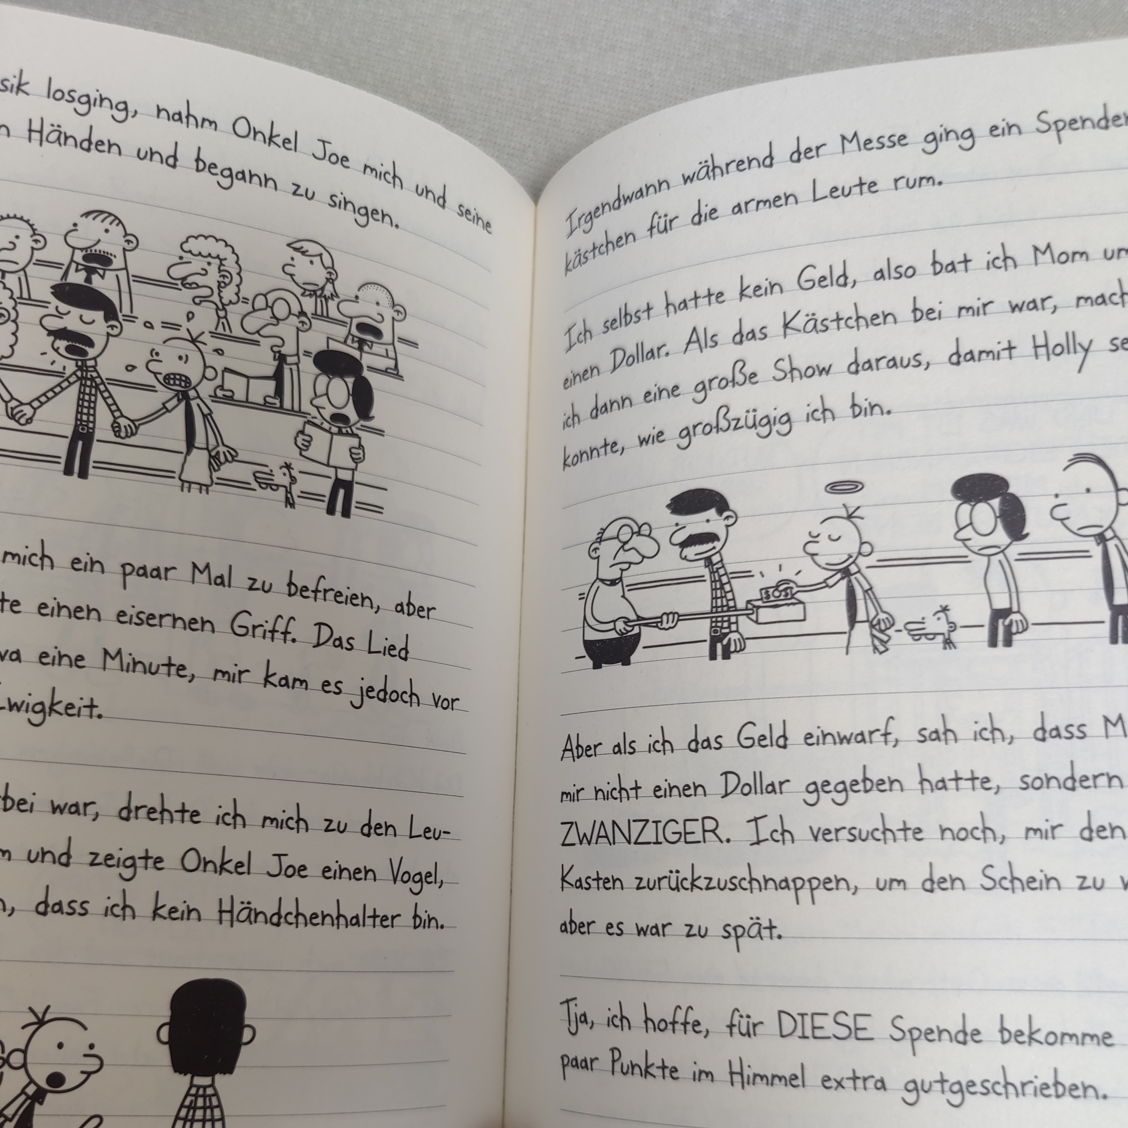 losging, nahm Onkel Joe mich und seine
Händen und begann zu singen.
mich ein paar Mal zu befreien, aber
einen eisernen Griff. Das Lied
eine Minute, mir kam es jedoch vor
bei war, drehte ich mich zu den Leu-
und zeigte Onkel Joe einen Vogel,
dass ich kein Händchenhalter bin.
Irgendwann während der Messe ging ein Spenden
kästchen für die armen Leute rum.
Ich selbst hatte kein Geld, also bat ich Mom um
einen Dollar. Als das Kästchen bei mir war, mach
ich dann eine große Show daraus, damit Holly se
konnte, wie großzügig ich bin.
Aber als ich das Geld einwarf, sah ich, dass M
mir nicht einen Dollar gegeben hatte, sondern
ZWANZIGER. Ich versuchte noch, mir den
Kasten zurückzuschnappen, um den Schein zu
aber es war zu spät.
Tja, ich hoffe, für DIESE Spende bekomme
paar Punkte im Himmel extra gutgeschrieben.